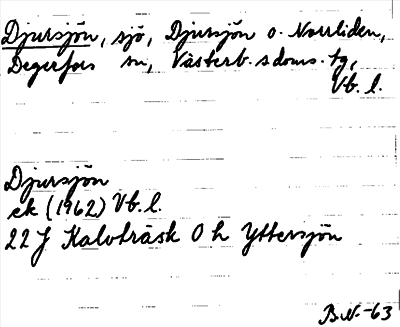 Djursjön, sjö, Djursjön o. Norrliden,
Degerfors sn, Västerb. s doms. tg,
Vb. l.
Djursjön
ek (1962) Vb. l.
22 J Kalvträsk O h Yttersjön
B.N.-63